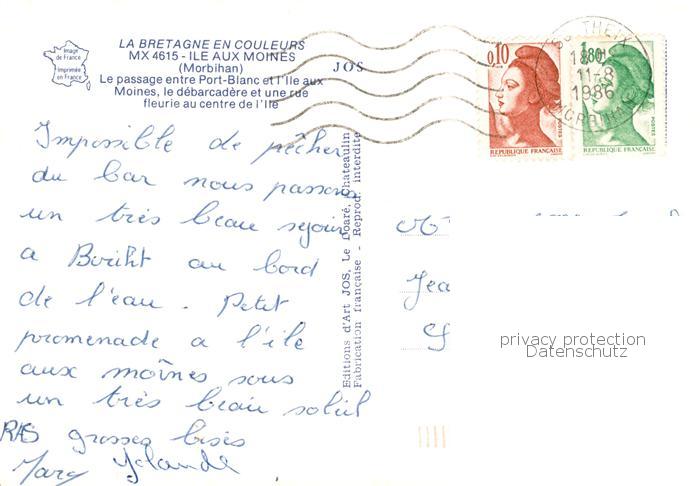 Image
de France
Imprimée
en France
LA BRETAGNE EN COULEURS
MX 4615 - ILE AUX MOINES
(Morbihan)
Le passage entre Port-Blanc et l'Ile aux
Moines, le débarcadère et une rue
fleurie au centre de l'Ile
JOS
0,10
REPUBLIQUE FRANÇAISE
POSTES
1,80
REPUBLIQUE FRANÇAISE
POSTES
56 THEIX
18H
11-8
1986
MORBIHAN
Impossible de pêcher
du bar nous passons
un très beau sejour
a au bord
de l'eau. Petit
promenade a l'ile
aux moînes sous
un très beau soleil
RAS grosses bises
Marc Yolande
Editions d'Art JOS, Le Doaré, Chateaulin
Fabrication française - Reprod. interdite
Jea
privacy protection
Datenschutz